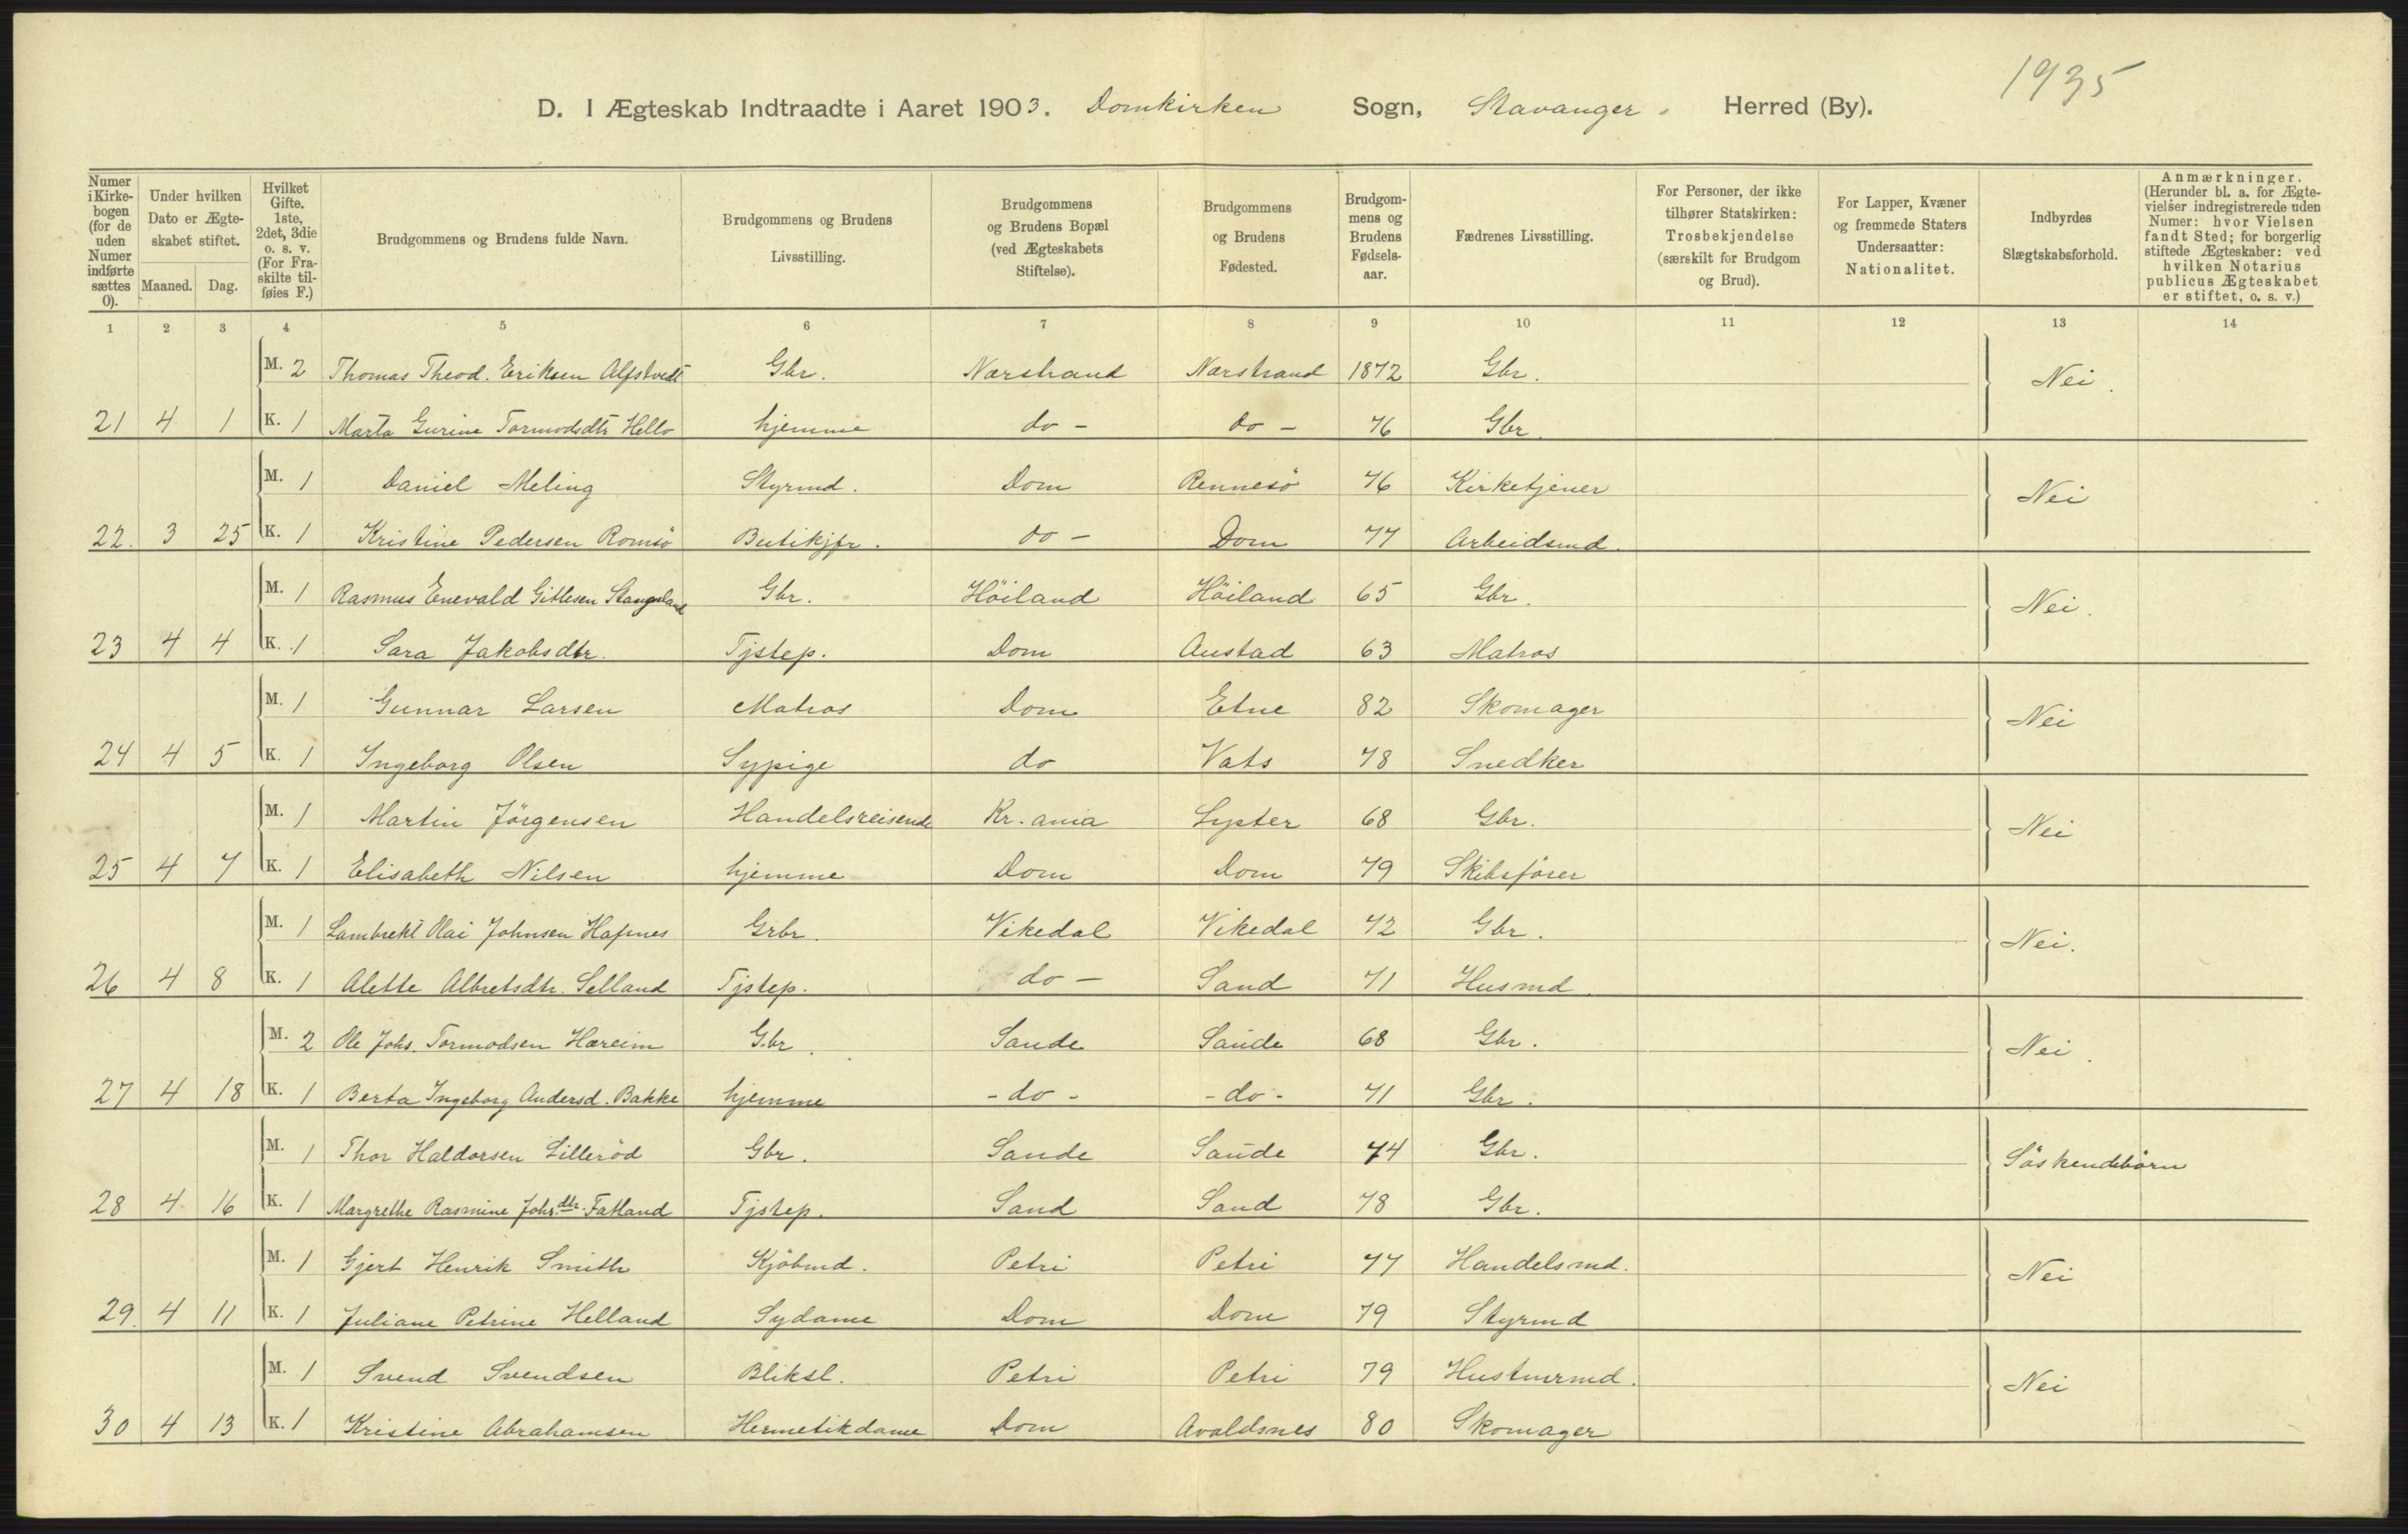 1935
D. I Ægteskab Indtraadte i Aaret 1903. Domkirken Sogn, Stavanger. Herred (By).
Numer i Kirke-bogen (for de uden Numer indførte sættes 0).
Under hvilken Dato er Ægte-skabet stiftet.
Maaned. Dag.
Hvilket Gifte. 1ste, 2det, 3die o. s. v. (For Fra-skilte til-føies F.)
Brudgommens og Brudens fulde Navn.
Brudgommens og Brudens Livsstilling.
Brudgommens og Brudens Bopæl (ved Ægteskabets Stiftelse).
Brudgommens og Brudens Fødested.
Brudgom-mens og Brudens Fødsels-aar.
Fædrenes Livsstilling.
For Personer, der ikke tilhører Statskirken: Trosbekjendelse (særskilt for Brudgom og Brud).
For Lapper, Kvæner og fremmede Staters Undersaatter: Nationalitet.
Indbyrdes Slægtskabsforhold.
Anmærkninger. (Herunder bl. a. for Ægte-vielser indregistrerede uden Numer: hvor Vielsen fandt Sted; for borgerlig stiftede Ægteskaber: ved hvilken Notarius publicus Ægteskabet er stiftet, o. s. v.)
1 2 3 4 5 6 7 8 9 10 11 12 13 14
M. 2 Thomas Theod. Eriksen Alfstvedt Gbr. Narstrand Narstrand 1872 Gbr. Nei.
21 4 1 K. 1 Marta Gurine Tormodsdtr Hello hjemme do - do - 76 Gbr.
M. 1 Daniel Meling Styrmd. Dom Rennesö 76 Kirketjener Nei
22. 3 25 K. 1 Kristine Pedersen Romsö Butikjfr. do - Dom 77 Arbeidsmd.
M. 1 Rasmus Enevald Gitlesen Stangeland Gbr. Höiland Höiland 65 Gbr. Nei.
23 4 4 K. 1 Sara Jakobsdtr. Tjstep. Dom Austad 63 Matros
M. 1 Gunnar Larsen Matros Dom Etne 82 Skomager Nei
24 4 5 K. 1 Ingeborg Olsen Sypige do Vats 78 Snedker
M. 1 Martin Jörgensen Handelsreisende Kr. ania Lyster 68 Gbr. Nei
25 4 7 K. 1 Elisabeth Nilsen hjemme Dom Dom 79 Skibsförer
M. 1 Lambrekt Olai Johnsen Hafnes Grbr. Vikedal Vikedal 72 Gbr. Nei.
26 4 8 K. 1 Alette Albretsdtr. Selland Tjstep. do - Sand 71 Husmd.
M. 2 Ole Johs. Tormodsen Hareim Gbr. Saude Saude 68 Gbr. Nei.
27 4 18 K. 1 Berta Ingeborg Andersd. Bakke hjemme - do - - do - 71 Gbr.
M. 1 Thor Haldorsen Lilleröd Gbr. Saude Saude 74 Gbr. Söskendebörn
28 4 16 K. 1 Margrethe Rasmine Johs.dtr. Fatland Tjstep. Sand Sand 78 Gbr.
M. 1 Gjert Henrik Smith Kjöbmd. Petri Petri 77 Handelsmd. Nei
29. 4 11 K. 1 Juliane Petrine Helland Sydame Dom Dom 79 Styrmd
M. 1 Svend Svendsen Bliksl. Petri Petri 79 Hustmrmd. Nei
30 4 13 K. 1 Kristine Abrahamsen Hermetikdame Dom Avaldsnes 80 Skomager